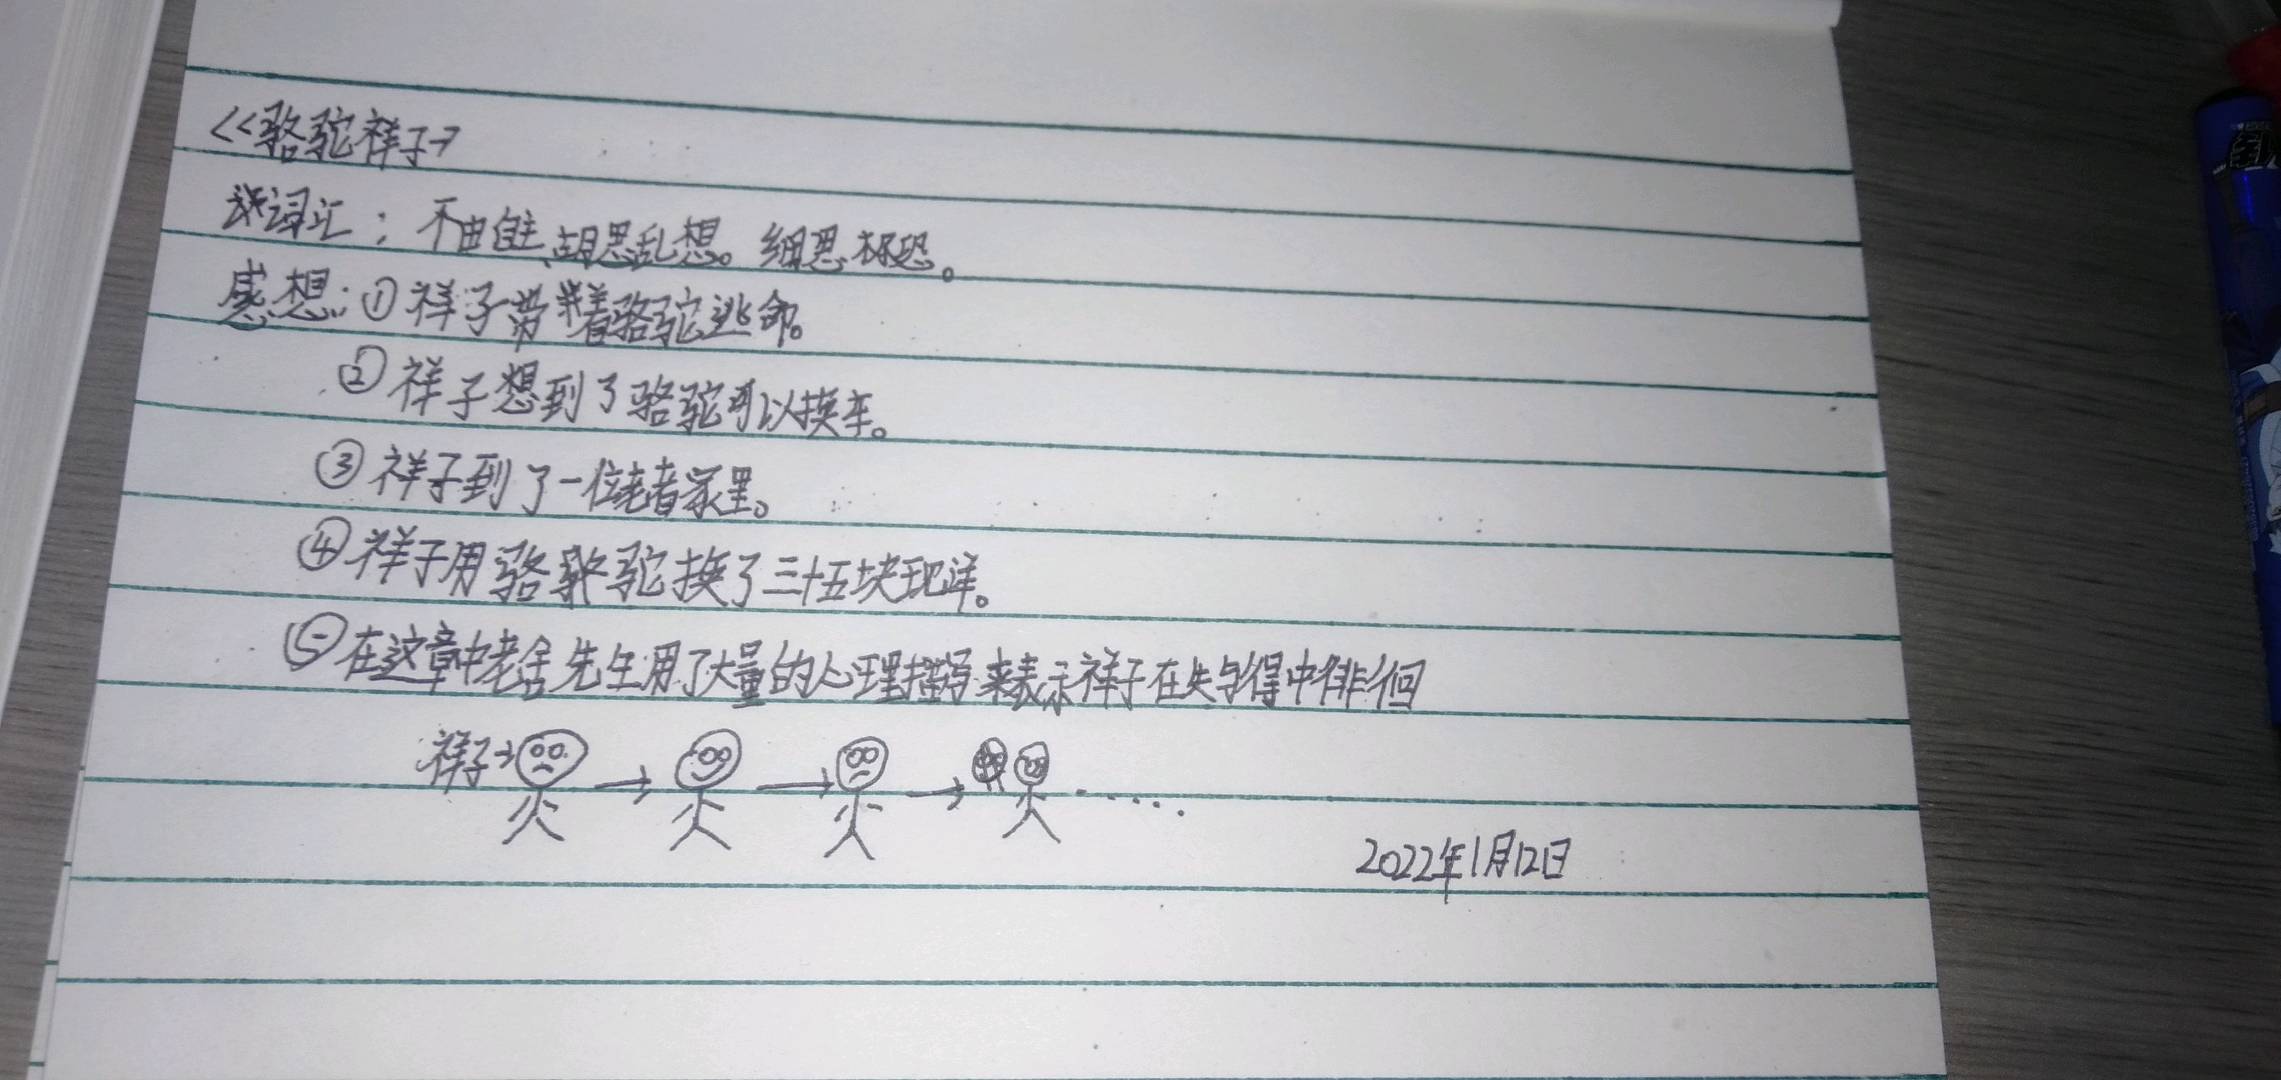 <<骆驼祥子>>
词汇：不由自主、胡思乱想。细思极恐。
感想：①祥子带着骆驼逃命。
②祥子想到了骆驼可以换车。
③祥子到了一位老者家里。
④祥子用骆驼换了三十五块现洋。
⑤在这章中老舍先生用了大量的心理描写来表示祥子在失与得中徘徊
祥子→
2022年1月12日